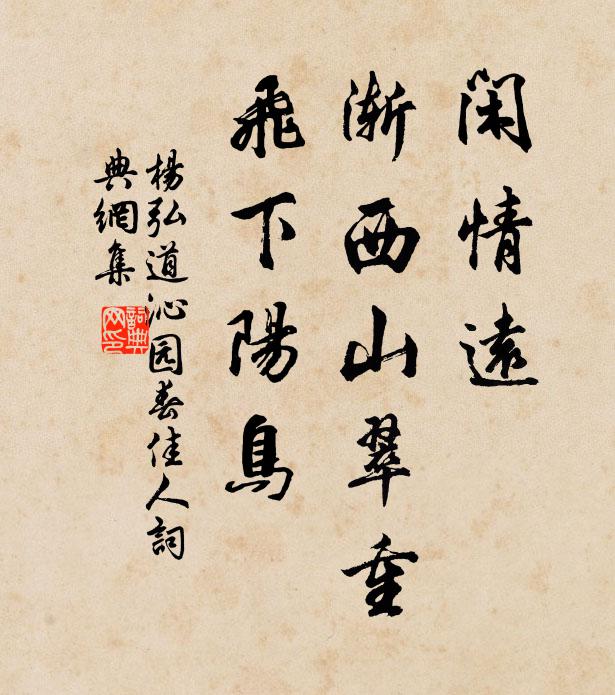 閑情遠
漸西山翠重
飛下陽鳥
楊弘道沁园春佳人詞
典網集
詞典
网印